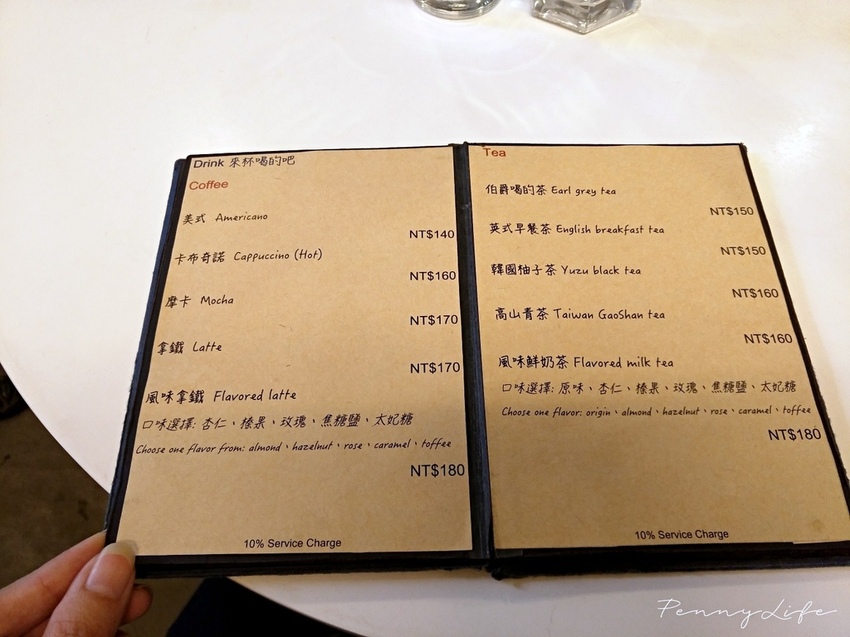 Drink 來杯喝的吧
Coffee
美式 Americano
NT$140
卡布奇諾 Cappuccino (Hot)
NT$160
摩卡 Mocha
NT$170
拿鐵 Latte
NT$170
風味拿鐵 Flavored latte
口味選擇: 杏仁、榛果、玫瑰、焦糖鹽、太妃糖
Choose one flavor from: almond、hazelnut、rose、caramel、toffee
NT$180
10% Service Charge
Tea
伯爵喝的茶 Earl grey tea
NT$150
英式早餐茶 English breakfast tea
NT$150
韓國柚子茶 Yuzu black tea
NT$160
高山青茶 Taiwan GaoShan tea
NT$160
風味鮮奶茶 Flavored milk tea
口味選擇: 原味、杏仁、榛果、玫瑰、焦糖鹽、太妃糖
Choose one flavor: origin、almond、hazelnut、rose、caramel、toffee
NT$180
10% Service Charge
PennyLife